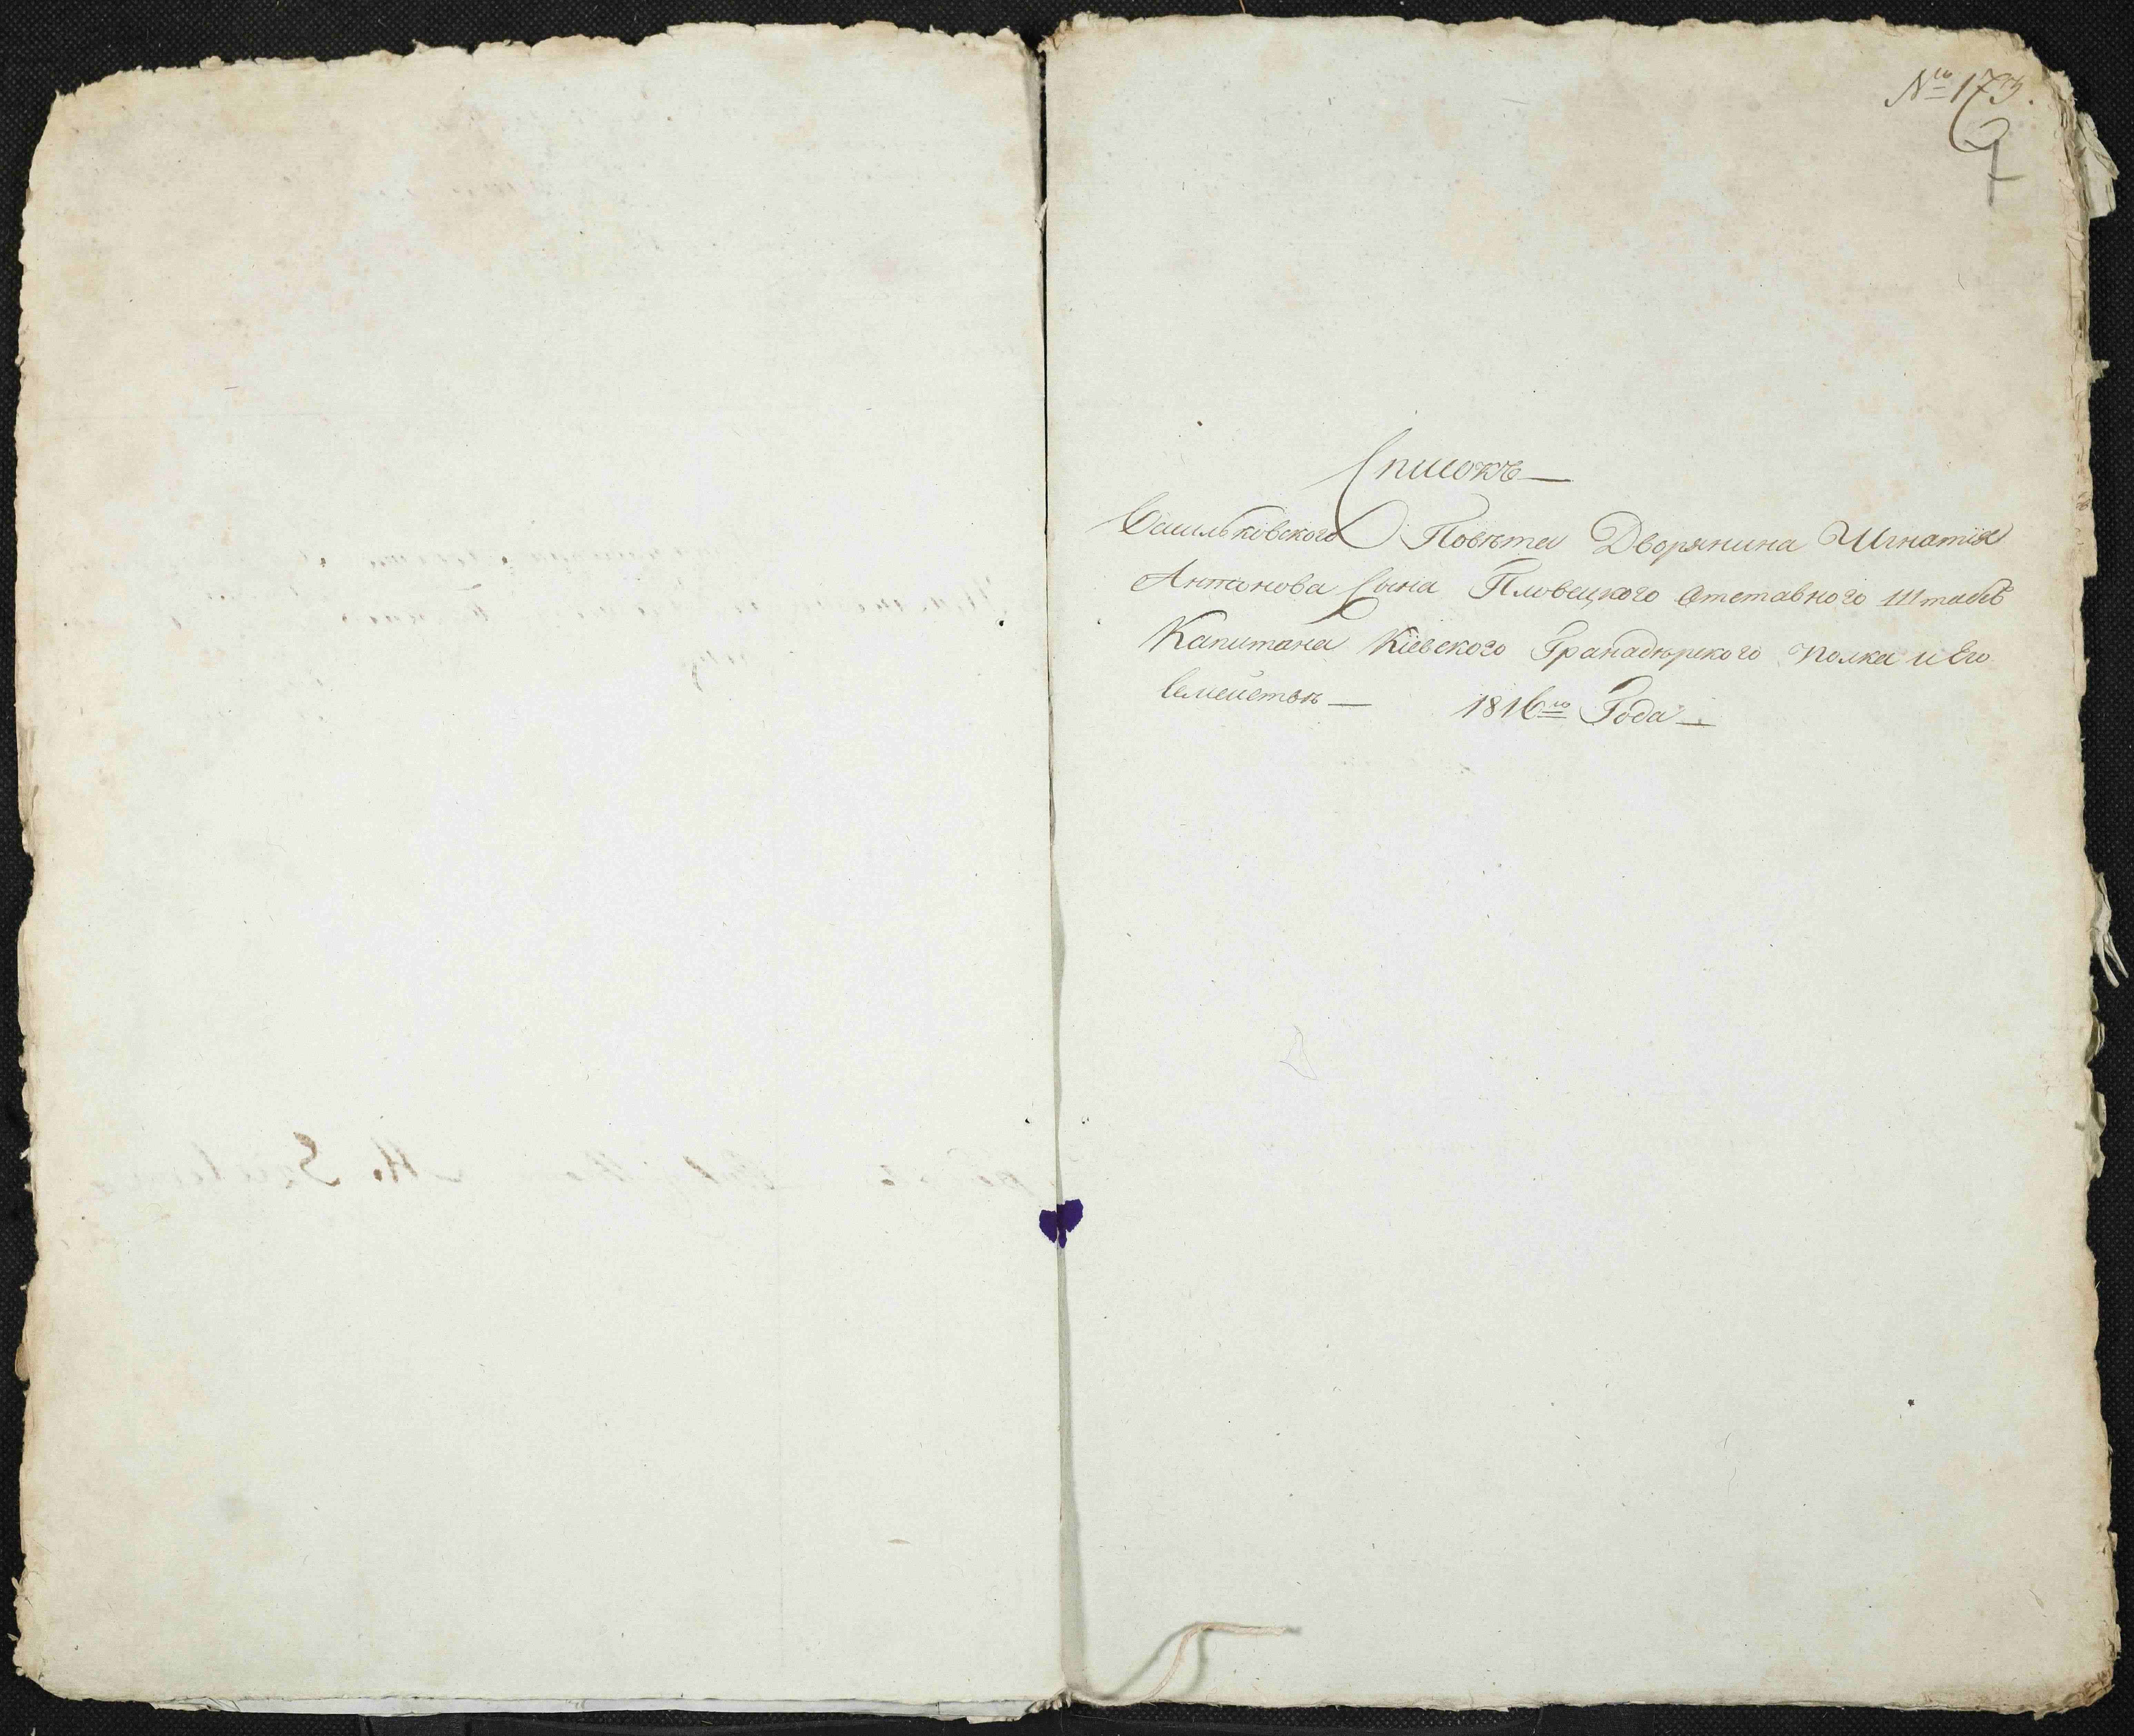 № 173.
Списокъ
Васильковского Повѣта Дворянина Игнатія
Антонова Сына Пловецкого отставного Штабсъ
Капитана Кіевского Гранадѣрского полка и Его
Семействѣ
1816го Года